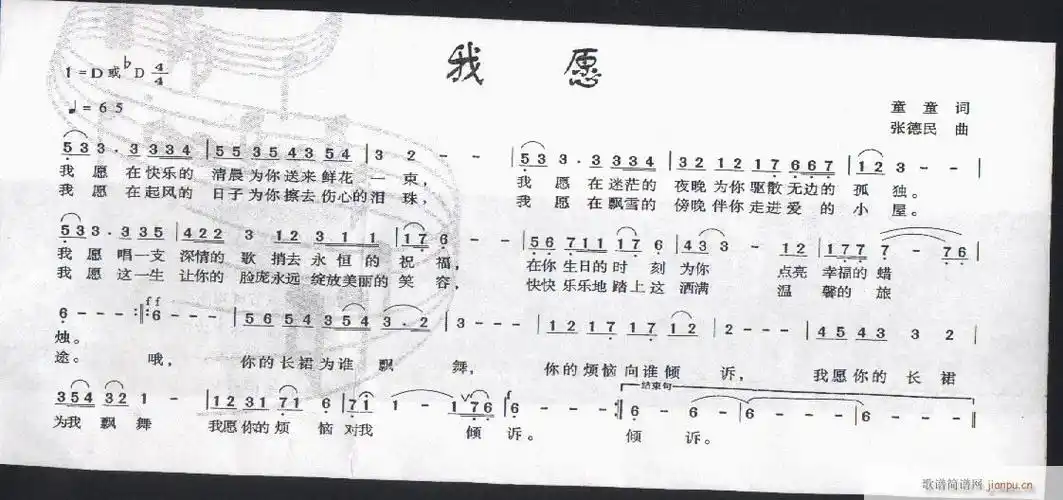 我 愿
1=D或♭D 4/4
♩=65
童 童 词
张德民 曲
5 3 3. 3 3 3 4 | 5 5 3 5 4 3 5 4 | 3 2 - - | 5 3 3. 3 3 3 4 | 3 2 1 2 1 7 6 6 7 | 1 2 3 - - |
我 愿 在快乐的 清晨为你送来鲜花一束， 我 愿 在迷茫的 夜晚为你驱散无边的 孤 独。
我 愿 在起风的 日子为你擦去伤心的泪 珠， 我 愿 在飘雪的 傍晚伴你走进爱 的 小 屋。
5 3 3. 3 3 5 | 4 2 2 2 3 1 2 3 1 1 | 1 7 6 - - | 5 6 7 1 1 1 7 6 | 4 3 3 - 1 2 | 1 7 7 7 - 7 6 |
我 愿 唱一支 深情的 歌 捎去永恒的 祝福， 在你生日的时 刻 为你 点亮 幸福的 蜡
我 愿 这一生 让你的 脸庞永远绽放美丽的笑 容， 快快乐乐地踏上这 洒满 温 馨的 旅
ff
6 - - - :| 6 - - - | 5 6 5 4 3 4 3 5 4 3. 2 | 3 - - - | 1 2 1 7 1 7 1 2 | 2 - - - | 4 5 4 3 3 2 |
烛。
途。 哦， 你的长裙为谁 飘 舞， 你的烦恼向谁倾 诉， 我愿你的 长 裙
结束句
3 5 4 3 2 1 - | 1 2 3 1 7 1 6 | 7 1 1 - 1 7 6 | 6 - - - :| 6 - - 6 - | 6 - - - | 6 - - - ‖
为我 飘 舞 我愿你的 烦 恼 对我 倾 诉。 倾 诉。
歌谱简谱网 jianpu.cn